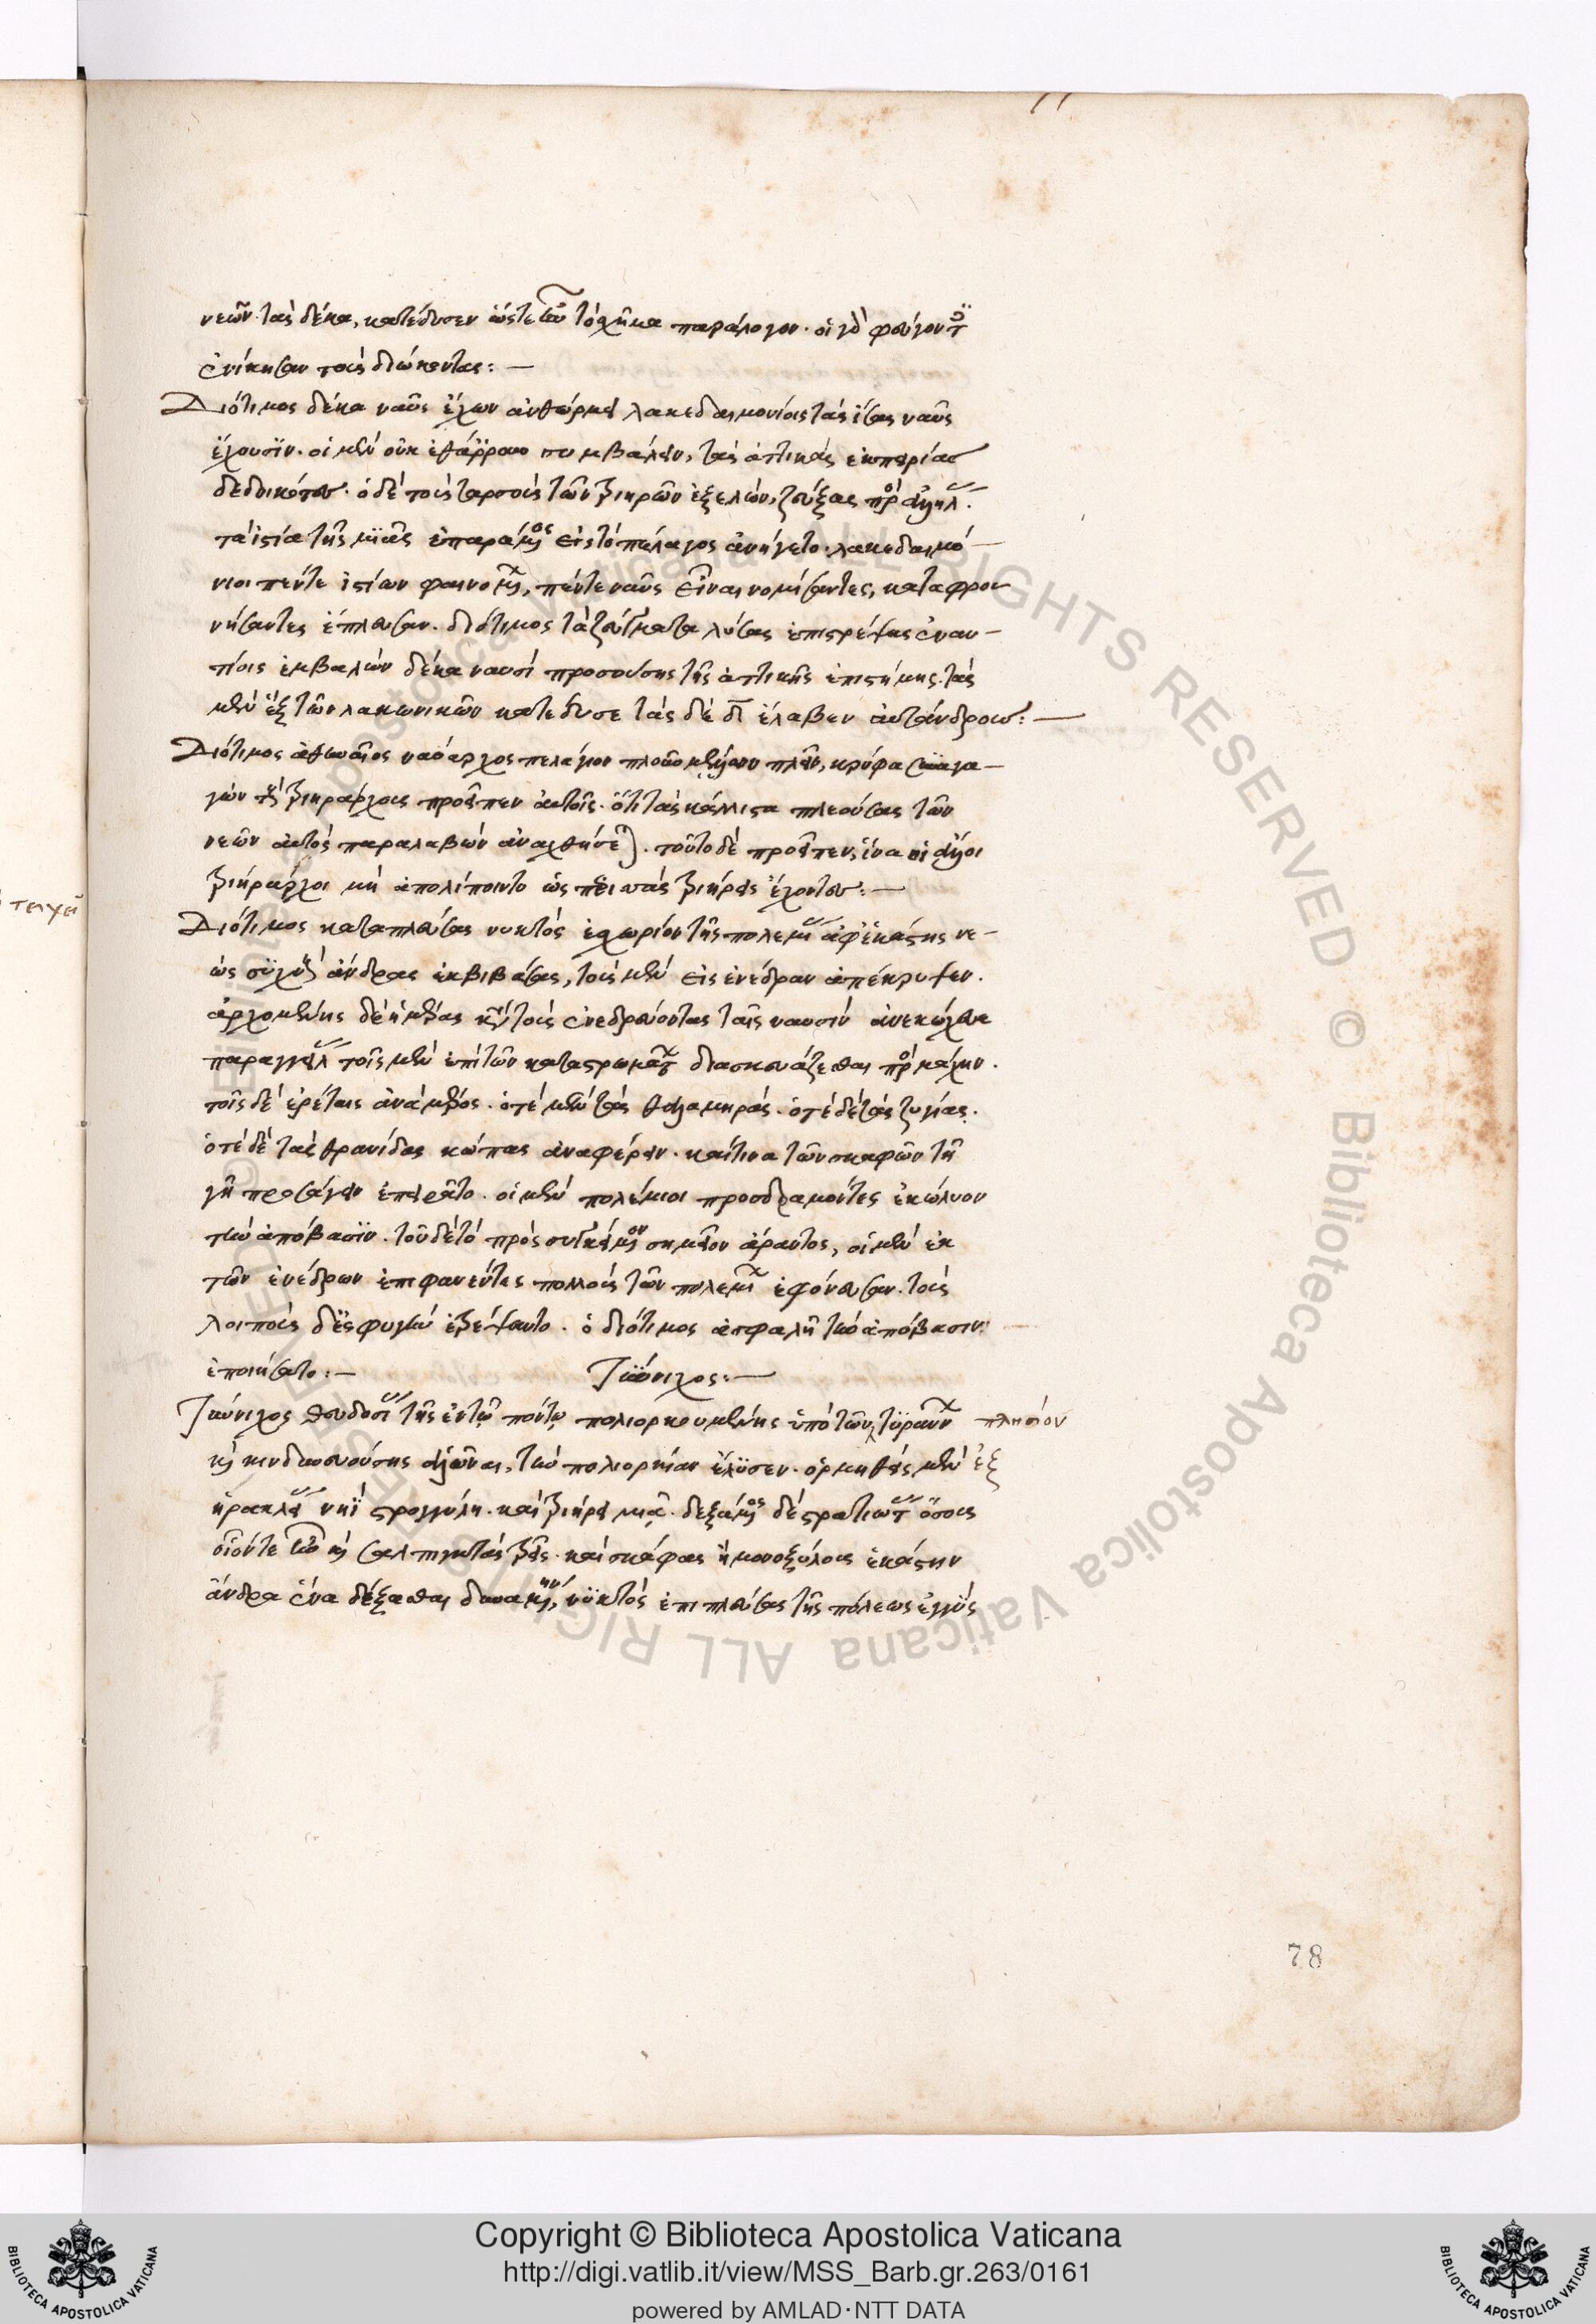 νεῶν τὰς δέκα, κατέδυσεν ὥστε ἦν τὸ σχῆμα παράλογον. οἱ γὰρ φεύγοντες
ἐνίκησαν τοὺς διώκοντας:—
Διότιμος δέκα ναῦς ἔχων ἀνθώρμει λακεδαιμονίοις τὰς ἴσας ναῦς
ἔχουσιν. οἱ μὲν οὐκ ἐθάρρουν συμβαλεῖν, τὰς ἀττικὰς ἐμπειρίας
δεδοικότες. ὁ δὲ τοὺς ταρσοὺς τῶν τριηρῶν ἐξελὼν, ζεύξας πρὸς ἀλλήλας
τὰ ἱστία τῆς μιᾶς ἐπαράμενος εἰς τὸ πέλαγος ἀνήγετο. λακεδαιμό-
νιοι πέντε ἱστίων φαινομένων, πέντε ναῦς εἶναι νομίσαντες, καταφρο-
νήσαντες ἔπλευσαν. διότιμος τὰ ζεύγματα λύσας ἐπιστρέψας ἐναν-
τίοις ἐμβαλὼν δέκα ναυσὶ προσούσης τῆς ἀττικῆς ἐπιστήμης. τὰς
μὲν ἓξ τῶν λακωνικῶν κατέδυσε τὰς δὲ δ̄ ἔλαβεν αὐτάνδρους:—
Διότιμος ἀθηναῖος ναύαρχος πελάγιον πλοῦν μέλλων πλεῖν, κρύφα συναγα-
γὼν τοὺς τριηράρχους προεῖπεν αὐτοῖς. ὅτι τὰς κάλλιστα πλεούσας τῶν
νεῶν αὐτὸς παραλαβὼν ἀναχθήσεται. τοῦτο δὲ προεῖπεν, ἵνα οἱ ἄλλοι
τριήραρχοι μὴ ἀπολίποιντο ὡς τὰς τριήρεις ἔχοντες:—
Διότιμος καταπλεύσας νυκτὸς ἐς χωρίον τῆς πολεμίας ἀφ' ἑκάστης νε-
ὼς συχνοὺς ἄνδρας ἐκβιβάσας, τοὺς μὲν εἰς ἐνέδραν ἀπέκρυψεν.
ἀρχομένης δὲ ἡμέρας κατὰ τοὺς ἐνεδρεύοντας ταῖς ναυσὶν ἀνεκώχευε
παραγγείλας τοῖς μὲν ἐπὶ τῶν καταστρωμάτων διασκευάζεσθαι πρὸς μάχην.
τοῖς δὲ ἐρέταις ἀνὰ μέρος. ὁτὲ μὲν τὰς θαλαμηράς. ὁτὲ δὲ τὰς ζυγίας.
ὁτὲ δὲ τὰς θρανίδας κώπας ἀναφέρειν. καί τινα τῶν σκαφῶν τῇ
γῇ προσάγειν ἐπειρᾶτο. οἱ μὲν πολέμιοι προσδραμόντες ἐκώλυον
τὴν ἀπόβασιν. τοῦ δὲ τὸ πρὸς συγκείμενον σημεῖον ἄραντος, οἱ μὲν ἐκ
τῶν ἐνέδρων ἐπιφανέντες πολλοὺς τῶν πολεμίων ἐφόνευσαν. τοὺς
λοιποὺς δὲ ἐς φυγὴν ἐτρέψαντο. ὁ διότιμος ἀσφαλῆ τὴν ἀπόβασιν
ἐποιήσατο:— Τύννιχος:—
Τύννιχος θευδοσίας τῆς ἐν τῷ πόντῳ πολιορκουμένης ὑπὸ τῶν τυράννων πλησίον
καὶ κινδυνευούσης ἁλῶναι, τὴν πολιορκίαν ἔλυσεν. ὁρμηθεὶς μὲν ἐξ
ἡρακλείας νηῒ στρογγύλῃ. καὶ τριήρει μιᾷ. δεξάμενος δὲ στρατιώτας ὅσους
οἷόν τε ἦν καὶ σαλπιγκτὰς τρεῖς. καὶ σκάφας ἢ μονοξύλους ἑκάστην
ἄνδρα ἕνα δέξασθαι δυναμένην, νυκτὸς ἐπιπλεύσας τῆς πόλεως ἐγγὺς
78
Copyright © Biblioteca Apostolica Vaticana
http://digi.vatlib.it/view/MSS_Barb.gr.263/0161
powered by AMLAD·NTT DATA